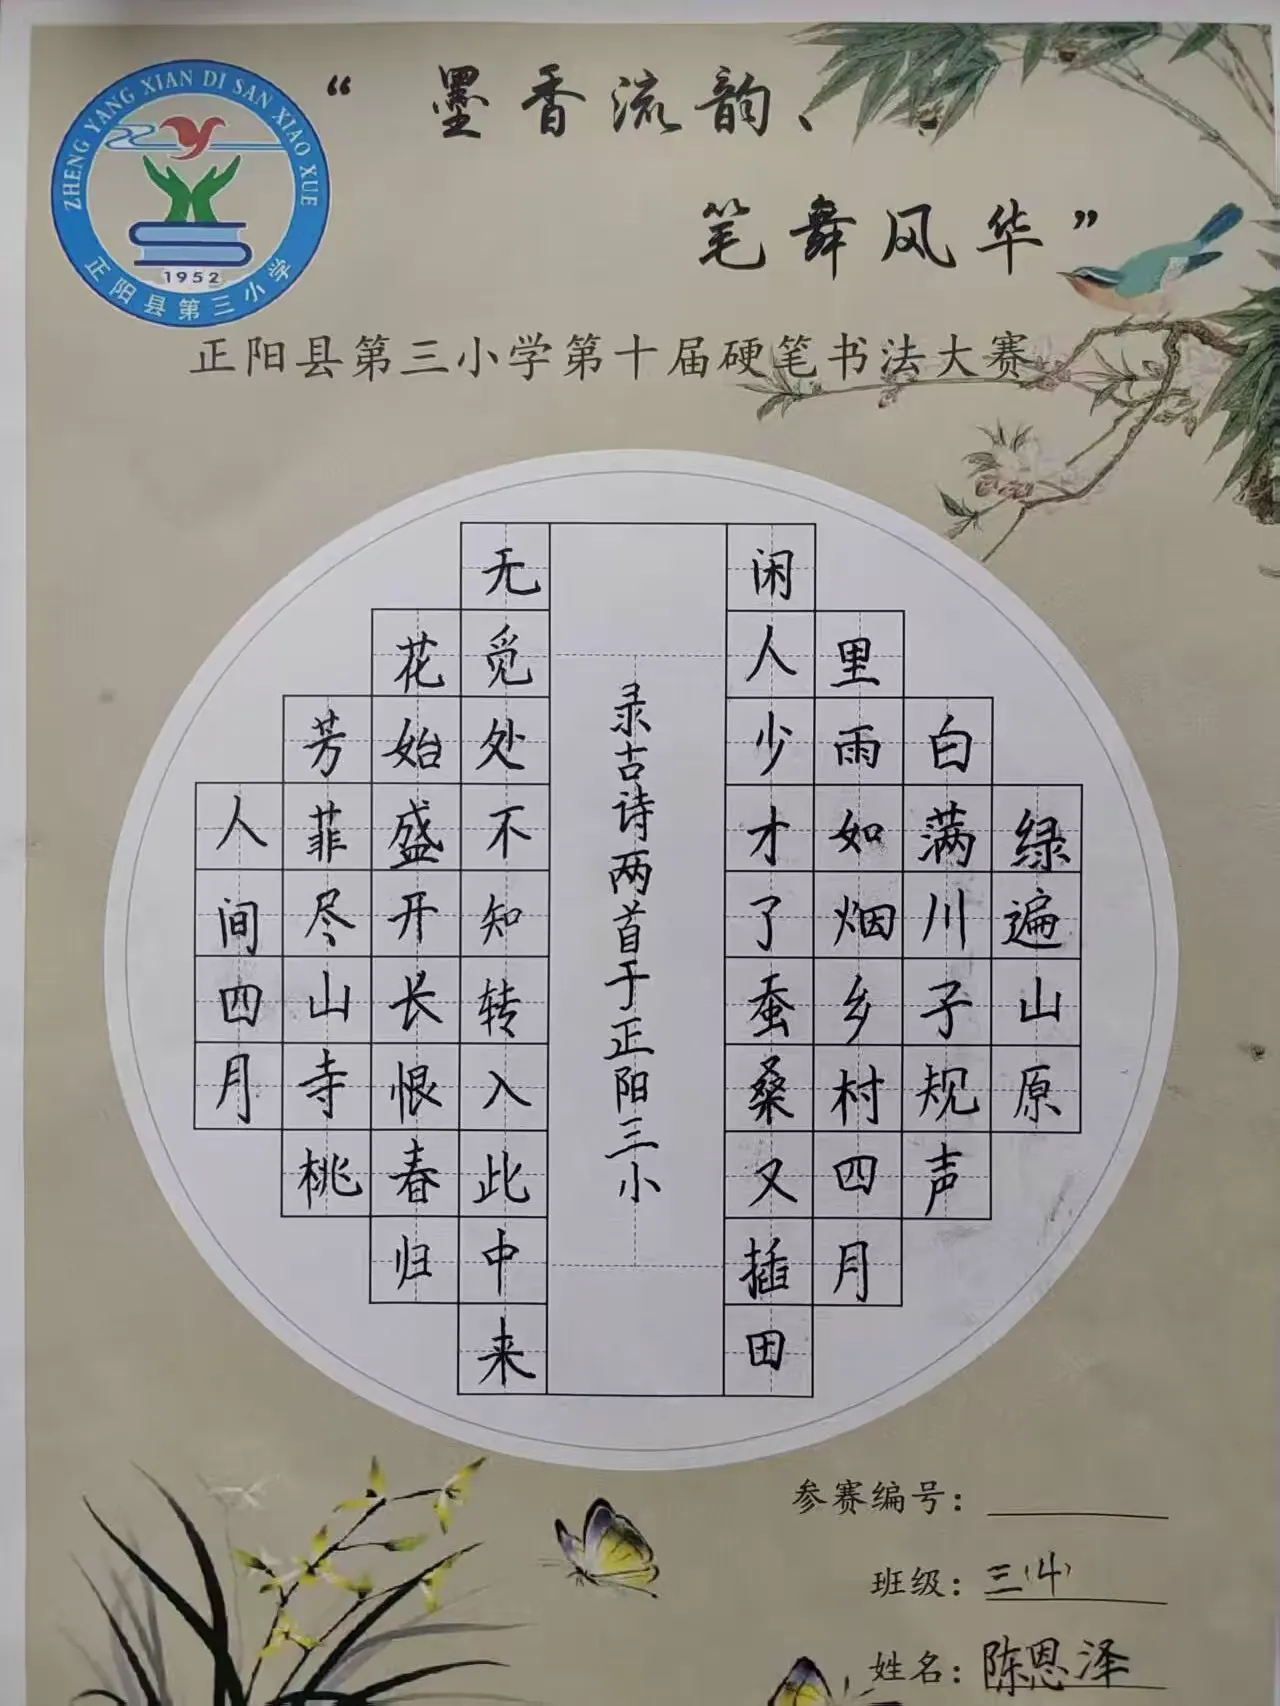 ZHENG YANG XIAN DI SAN XIAO XUE
1952
正阳县第三小学
“墨香流韵、
笔舞风华”
正阳县第三小学第十届硬笔书法大赛
绿遍山原
白满川子规声
里雨如烟乡村四月
闲人少才了蚕桑又插田
录古诗两首于正阳三小
无觅处不知转入此中来
花始盛开长恨春归
芳菲尽山寺桃
人间四月
参赛编号：
班级：三(4)
姓名：陈恩泽